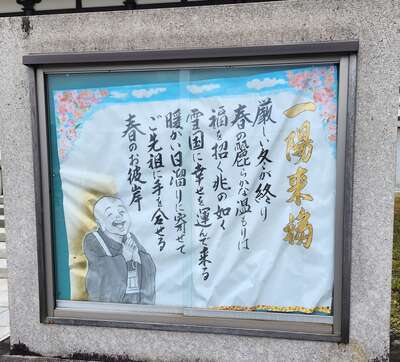 一陽来福
厳しい冬が終り
春の麗らかな温もりは
福を招く兆の如く
雪国に幸せを運んで来る
暖かい日溜りに寄せて
ご先祖に手を合せる
春のお彼岸